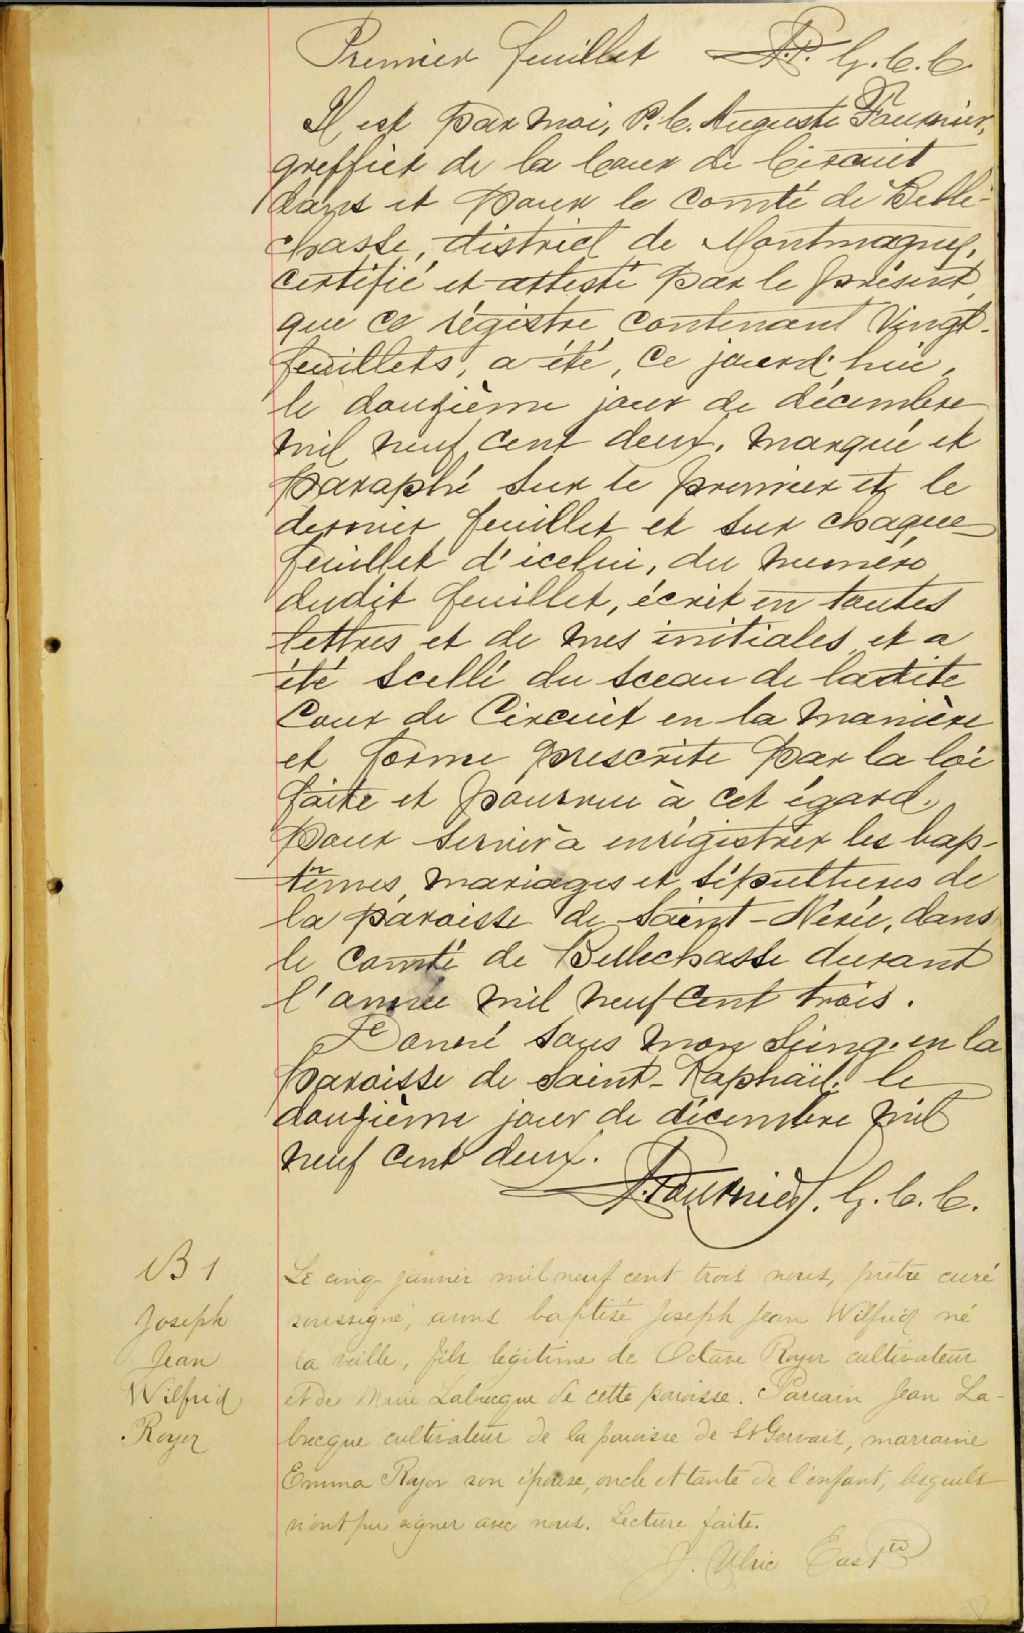 Premier feuillet A.F. G.C.C.
Il est par moi, P. C. Auguste Fournier,
greffier de la Cour de Circuit
dans et pour le comté de Belle-
chasse, district de Montmagny,
certifié et attesté par le présent
que ce régistre contenant Vingt-
feuillets, a été, ce jourd'hui,
le douzième jour de décembre
mil neuf cent deux, marqué et
paraphé sur le premier et le
dernier feuillet et sur chaque
feuillet d'icelui, du numéro
dudit feuillet, écrit en toutes
lettres et de mes initiales et a
été scellé du sceau de ladite
Cour de Circuit en la manière
et forme prescrite par la loi
faite et pourvue à cet égard,
pour servir à enrégistrer les bap-
têmes, mariages et sépultures de
la paroisse de Saint-Nérée, dans
le comté de Bellechasse durant
l'année mil neuf cent trois.
Donné sous mon seing en la
paroisse de Saint-Raphaël, le
douzième jour de décembre mil
neuf cent deux.
A. Fournier. G.C.C.
B 1
Joseph
Jean
Wilfrid
Royer
Le cinq janvier mil neuf cent trois nous, prêtre curé
soussigné, avons baptisé Joseph Jean Wilfrid né
la veille, fils légitime de Octave Royer cultivateur
et de Marie Labrecque de cette paroisse. Parrain Jean La-
brecque cultivateur de la paroisse de St Gervais, marraine
Emma Royer son épouse, oncle et tante de l'enfant, lesquels
n'ont pu signer avec nous. Lecture faite.
J. Ulric